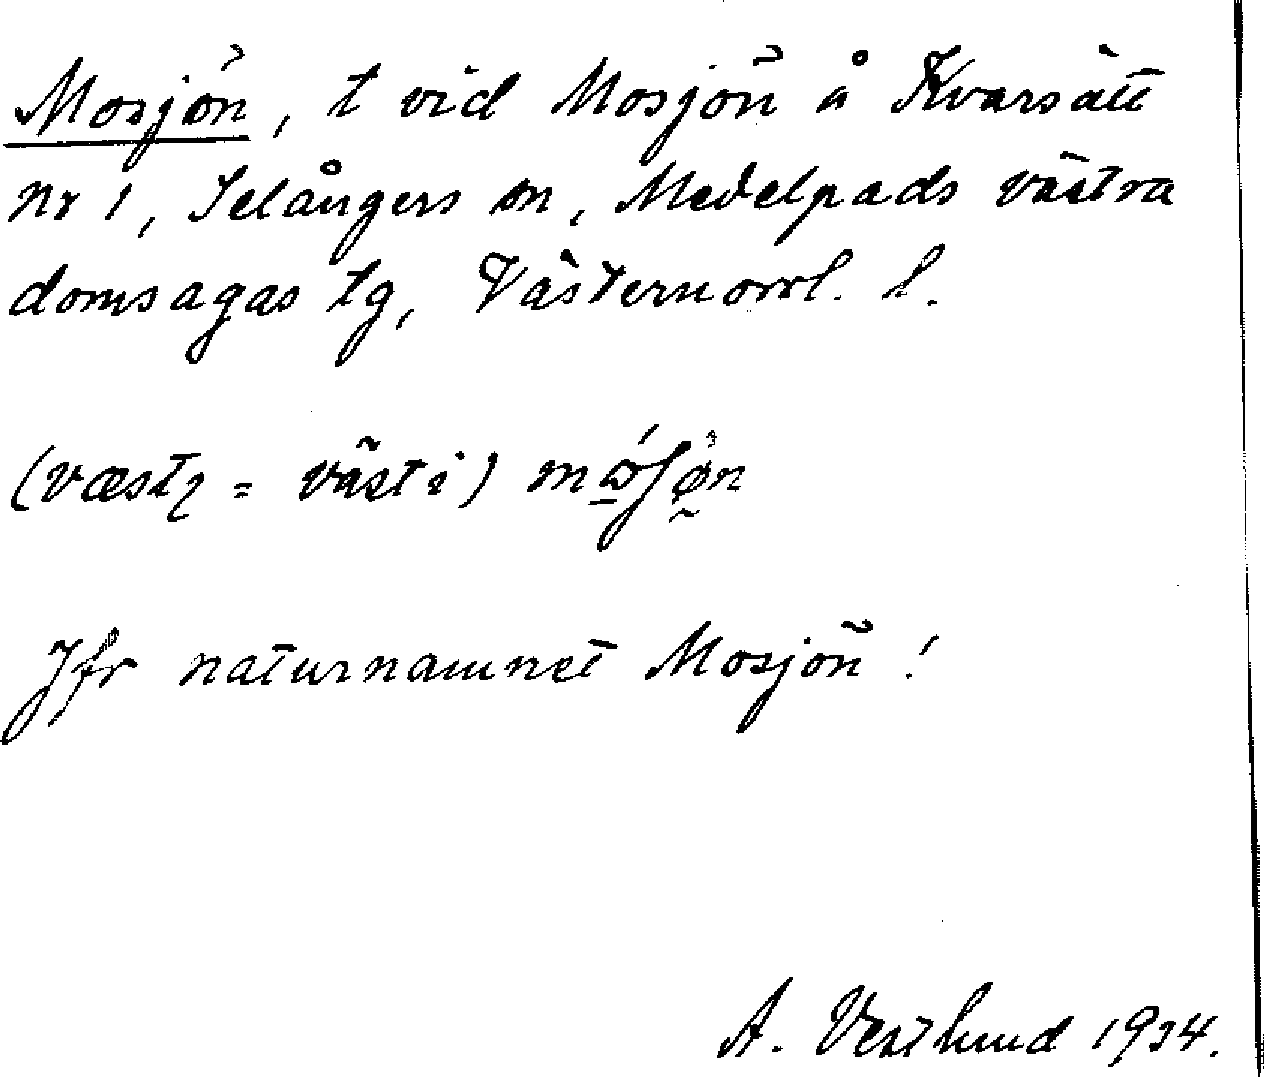 Mosjön, t vid Mosjön å Kvarsätt
nr 1, Selångers sn, Medelpads västra
domsagas tg, Västernorrl. l.
(væstɩ = väst i)
Jfr naturnamnet Mosjön!
A. Vestlund 1934.